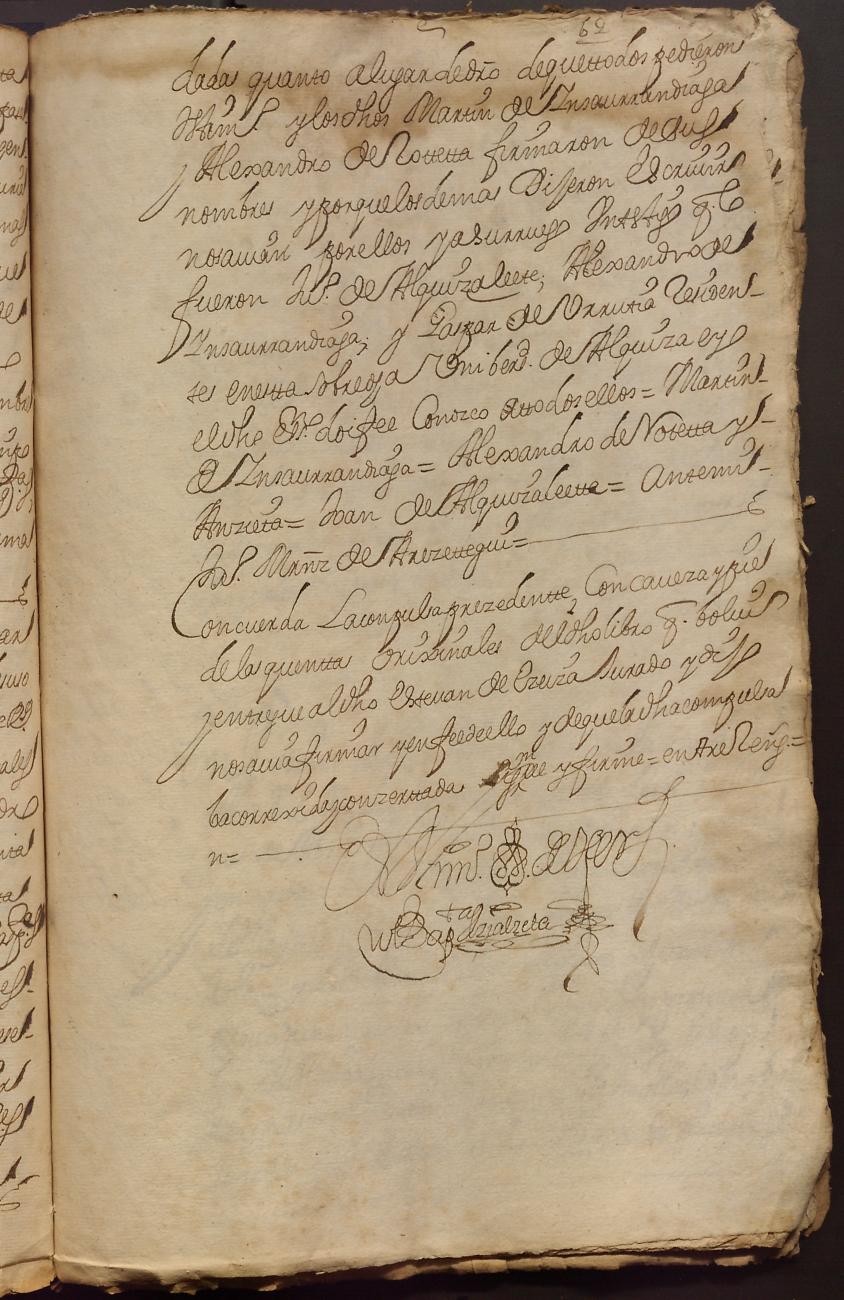 62
dada quanto a lugar de dro de que ttodos pedieron
ttestim.º y los dhos Martin de Ynsaurrandiaga
y Alexandro de Nottetta firmaron de sus
nombres y porque los demas Dijeron Escriuir
no sauian por ellos y a su rruego Un testigo q. lo
fueron Ju.º de Alquizaleete, Alexandro de
Ynsaurrandiaga, y Gaspar de Vrrutia Residen-
tes en estta sobre dja Vniberd. de Alquiza e yo
el dho Ess.º doi fee Conozco a ttodos ellos = Martin
de Ynsaurrandiaga = Alexandro de Notetta y
Anzieta = Joan de Alquizaleetta = Antemi
Ju.º Mrnz de Arezettegui =
Concuerda La conpulsa prezedentte, Con cauera y pie
de las quenttas Orixinales del dho libro q. bolui
y entregue al dho Esteuan de Ereiza Jurado y dijo
no sauia firmar y en fee de ello y de que la dha compulsa
ba correxida y conzerttada signe y firme = en tre Reng. =
n =
En testim.º de Verd.
Ju Bapta de Zialzeta